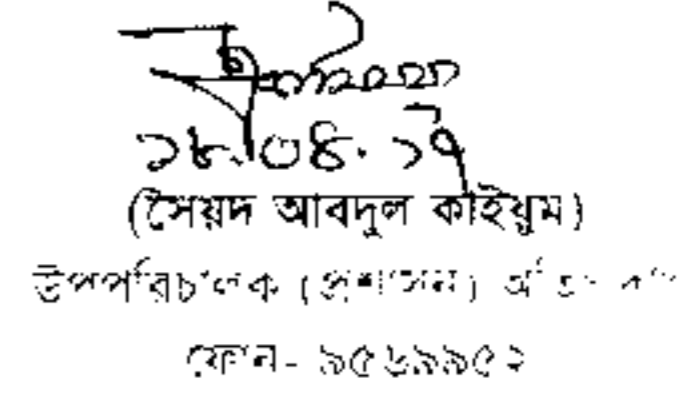 ১৮.০৪.১৭
(সৈয়দ আবদুল কাইয়ুম)
উপপরিচালক (প্রশাসন)
ফোন- ৯৫৬৯৯৫২